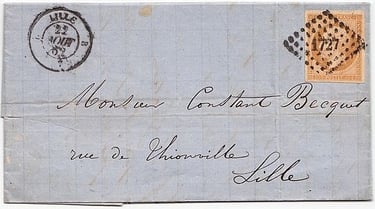 LILLE
22
AOUT
62
B
1727
Monsieur Constant Becquet
rue de Thionville
Lille